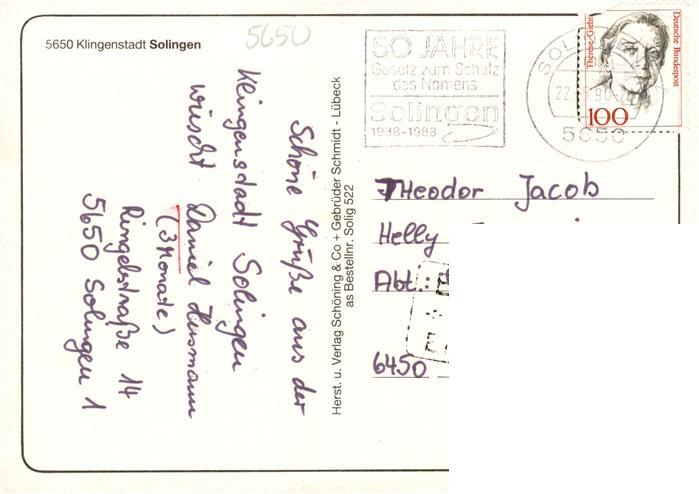 5650 Klingenstadt Solingen
5650
50 JAHRE
Gesetz zum Schutz
des Namens
Solingen
1938-1988
SOL
22.
90
5650
Therese Giehse
Deutsche Bundespost
100
Schöne Grüße aus der
Klingenstadt Solingen
wüscht Daniel Husmann
(3 Monate)
Ringelstraße 14
5650 Solingen 1
Herst. u. Verlag Schöning & Co + Gebrüder Schmidt - Lübeck
as Bestellnr. Solig 522
Theodor Jacob
Helly
Abt.:
6450